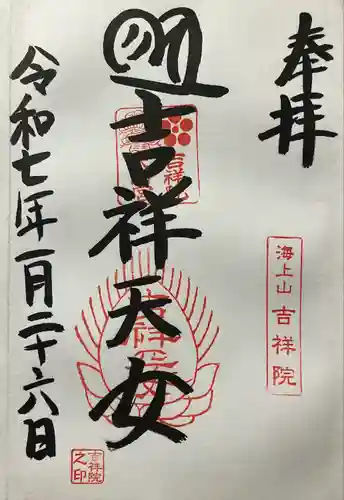 奉拝
海上山 吉祥院
吉祥天女
令和七年一月二十六日
吉祥院
之印